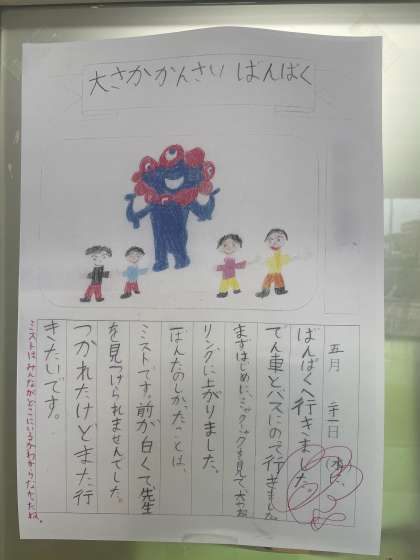 大さかかんさい ばんぱく
五月 二十一日(水)に、
ばんぱくへ行きました。
でん車とバスにのって行きました。
まずはじめに、ミャクミャクを見て、大やね
リングに上がりました。
一ばんたのしかったことは、
ミストです。前が白くて先生
を見つけられませんでした。
つかれたけどまた行
きたいです。
ミストはみんながどこにいるかわからなかったね。